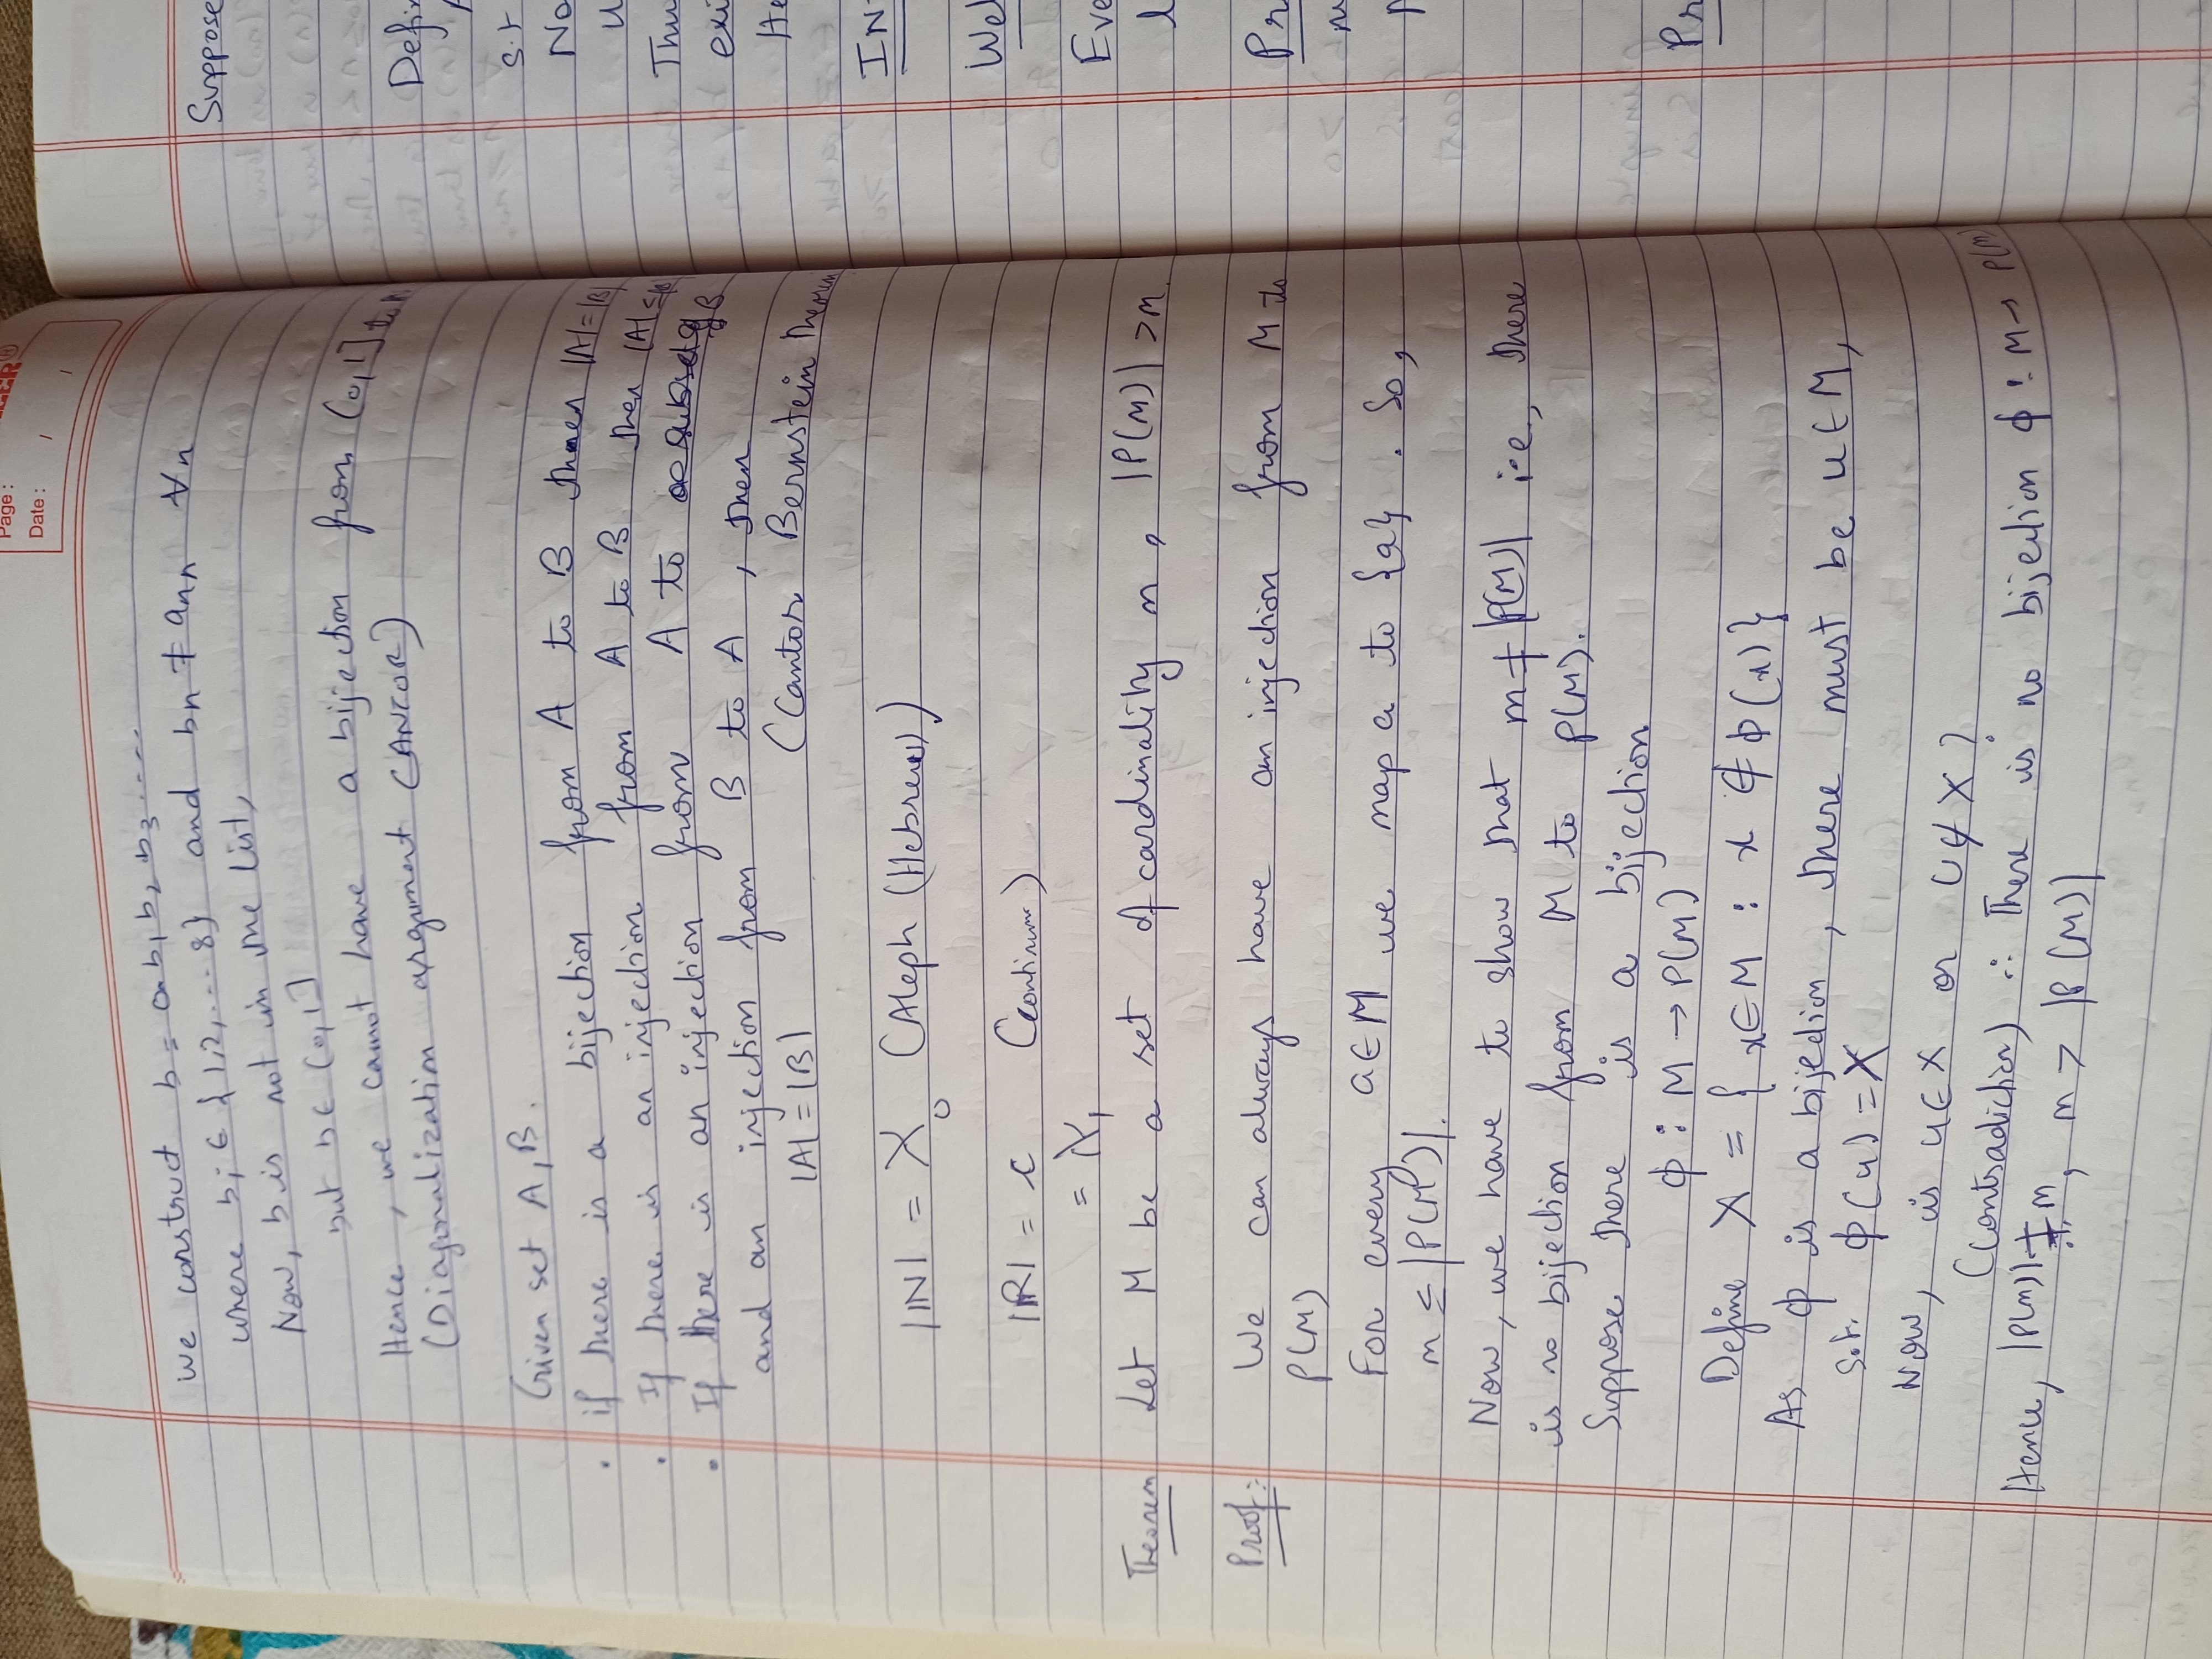 Page :
Date : / /
we construct b = 0.b₁b₂b₃....
where bᵢ ∈ {1,2,....8} and bₙ ≠ aₙₙ ∀n
Now, b is not in the list,
but b ∈ (0,1]
Hence, we cannot have a bijection from (0,1] to ℕ
(Diagonalization argument CANTOR)
Given set A, B.
• if there is a bijection from A to B then |A| = |B|
• If there is an injection from A to B then |A| ≤ |B|
• If there is an injection from A to B
and an injection from B to A, then
|A| = |B| (Cantor Bernstein theorem
|ℕ| = ℵ₀ (Aleph (Hebrew))
|ℝ| = c (continuum)
= ℵ₁
Theorem Let M be a set of cardinality m, |P(M)| > m.
Proof:- We can always have an injection from M to
P(M)
For every a ∈ M we map a to {a}. So,
m ≤ |P(M)|.
Now, we have to show that m ≠ |P(M)| i.e., there
is no bijection from M to P(M).
Suppose there is a bijection
φ : M → P(M)
Define X = { x ∈ M : x ∉ φ(x) }
As φ is a bijection, there must be u ∈ M,
s.t. φ(u) = X
Now, is u ∈ X or u ∉ X?
(Contradiction) ∴ There is no bijection φ : M → P(M)
Hence, |P(M)| ≠ m, m > |P(M)|
Suppose
Defin
s.t
No
u
Thu
exi
He
IN
Wel
Eve
Pr
Pr